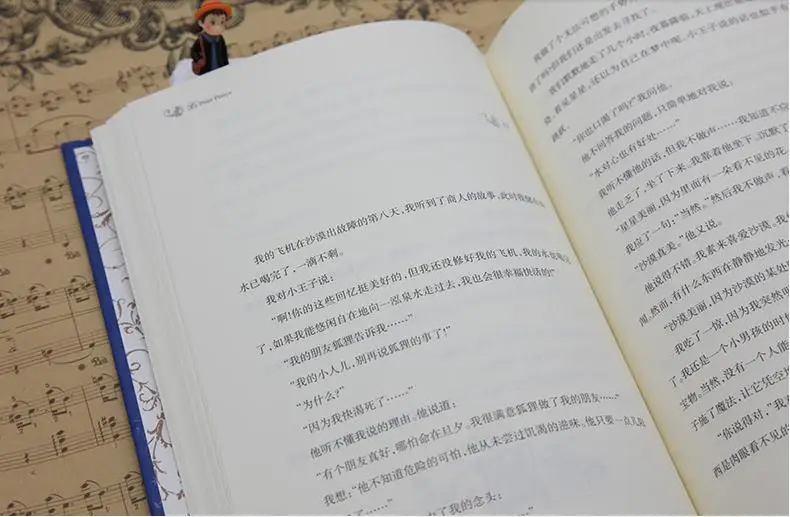 Le Petit Prince
我的飞机在沙漠出故障的第八天，我听到了商人的故事，此时我
水已喝完了，一滴不剩。
我对小王子说：
“啊！你的这些回忆挺美好的，但我还没修好我的飞机，我的水
了，如果我能悠闲自在地向一泓泉水走过去，我也会很幸福快活的！”
“我的朋友狐狸告诉我……”
“我的小人儿，别再说狐狸的事了！”
“为什么？”
“因为我快渴死了……”
他听不懂我说的理由。他说道：
“有个朋友真好，哪怕命在旦夕。我很满意狐狸做了我的朋友……”
我想：“他不知道危险的可怕，他从未尝过饥渴的滋味。他只要一点儿阳
了我的念头：
我们默默地走了几个小时，夜幕降临，天上
看见星星，还以为自己在梦中呢。小王子说的话
“你也口渴了吗？”我问他。
他不回答我的问题，只简单地对我说：
“水对心也有好处……”
我听不懂他的话，但我不做声……我知道不应
他走乏了，坐了下来。我靠着他坐下。沉默了
“星星美丽，因为里面有一朵看不见的花
我应了一句：“当然。”然后我不做声，看
“沙漠真美。”他又说。
他说得不错。我素来喜爱沙漠。我
闻。然而，有什么东西在静静地发光
“沙漠美丽，因为沙漠的某处
我吃了一惊，因为我突然明
了。我还是一个小男孩的时候
宝物。当然，没有一个人能
子施了魔法，让它凭空
“你说得对，”我
西是肉眼看不见的